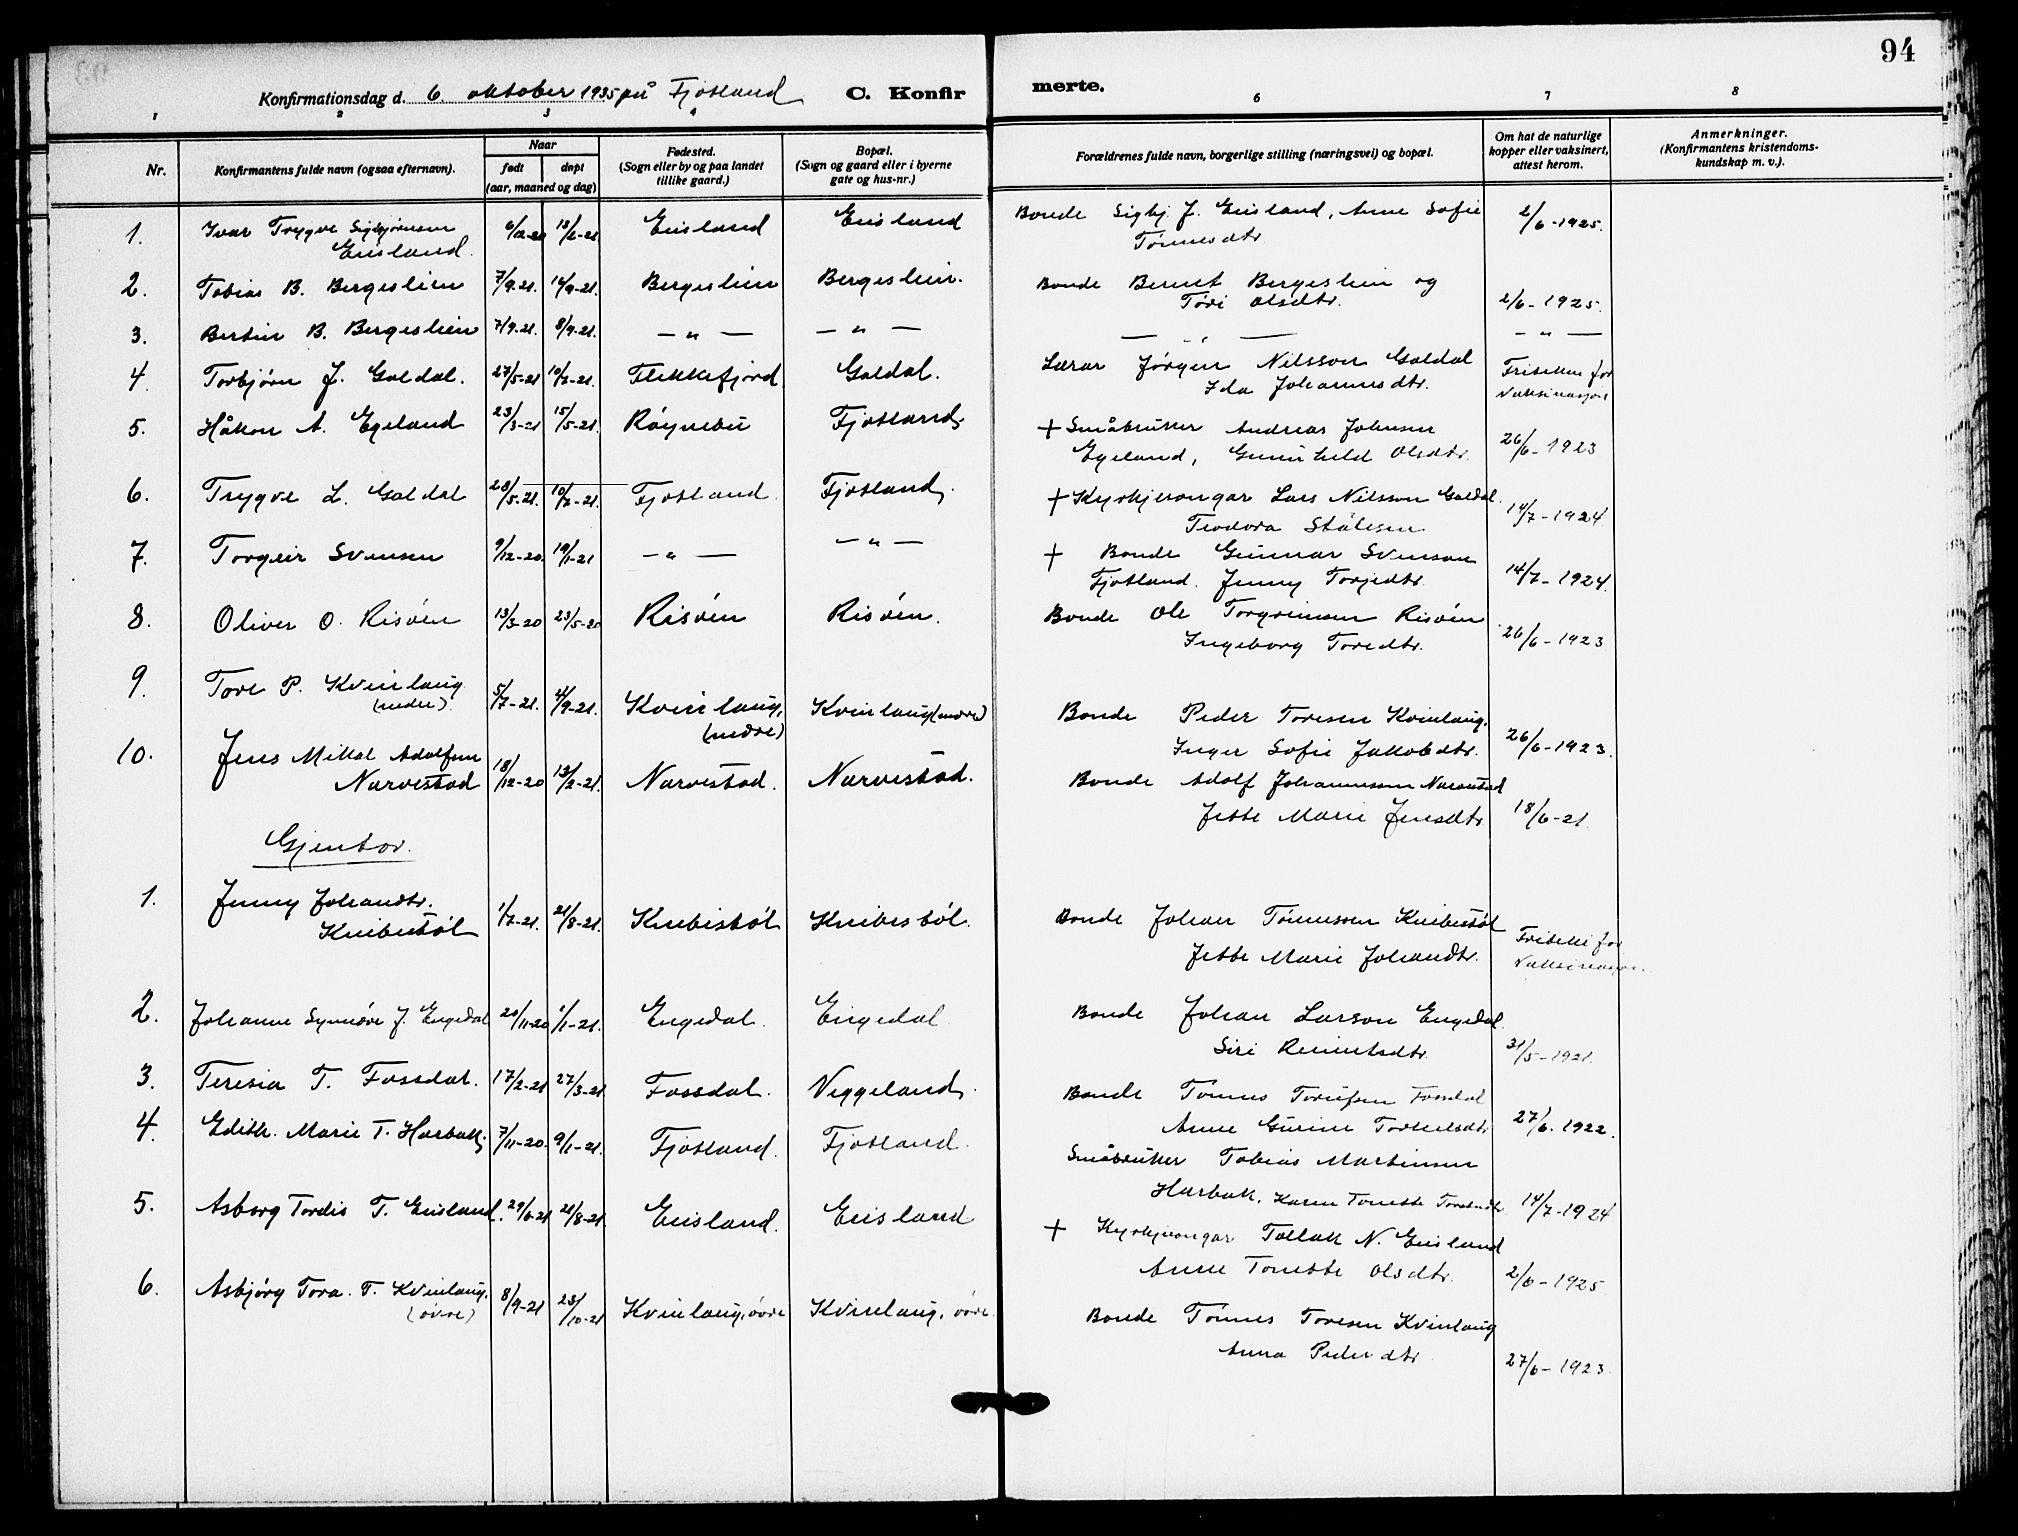 94
Konfirmationsdag d. 6. oktober 1935 på Fjotland C. Konfirmerte.
1 2 3 4 6 7 8
Nr.
Konfirmantens fulde navn (ogsaa efternavn).
Naar
født døpt
(aar, maaned og dag)
Fødested.
(Sogn eller by og paa landet
tillike gaard.)
Bopæl.
(Sogn og gaard eller i byerne
gate og hus-nr.)
Forældrenes fulde navn, borgerlige stilling (næringsvei) og bopæl.
Om hat de naturlige
kopper eller vaksinert,
attest herom.
Anmerkninger.
(Konfirmantens kristendoms-
kundskap m. v.).
1. Ivar Trygve Sigbjørnsen 13/2-21. Eiesland Eiesland Bonde Sigbj. J. Eiesland, Anne Sofie 2/6-1925.
Eiesland. Tønnesdtr
2. Tobias B. Bergeslien 7/9-21. 14/9-21. Bergeslien Bergeslien. Bonde Bernt Bergeslien og
Tøri Olsdtr. 2/6-1925.
3. Bertin B. Bergeslien 7/9-21. 8/9-21. — „ — — „ — — „ — — „ —
4. Torbjørn J. Galdal. 27/5-21 10/7-21. Flekkefjord Galdal. Lærar Jørgen Nilsson Galdal Friteken for
Ida Johannesdtr. Vaksinasjon
5. Håkon A. Egeland 23/3-21 15/5-21. Røynebu Fjotland + Småbruker Andreas Johnsen
Egeland, Gunnhild Olsdtr. 26/6-1923
6. Trygve L. Galdal 28/5-21. 10/7-21. Fjotland Fjotland. + Kyrkjesongar Lars Nilsson Galdal.
Teodora Stålesen 14/7-1924
7. Torgeir Svensen 9/12-20. 19/1-21 — „ — — „ — + Bonde Gunnar Svenson
Fjotland. Jenny Torjedtr. 14/7-1924.
8. Oliver O. Risøen 13/3-20 23/5-20 Risøen Risøen. Bonde Ole Torgrimsen Risøen
Ingeborg Toredtr. 26/6-1923
9. Tore P. Kvinlaug 5/7-21. 4/9-21. Kvinlaug, Kvinlaug (nedre) Bonde Peder Toresen Kvinlaug.
(nedre) (nedre) Inger Sofie Jakobdtr. 26/6-1923.
10. Jens Mikal Adolfsen
Narvestad 18/12-20 13/2-21. Narvestad. Narvestad. Bonde Adolf Johannessen Narvestad
Jette Marie Jensdtr 18/6-21.
Gjentor.
1. Jenny Johandtr.
Knibestøl 1/7-21. 21/8-21. Knibestøl Knibestøl. Bonde Johan Tønnessen Knibestøl
Jette Marie Johandtr. Friteke for
Vaksinasjon.
2. Johanne Synnøve J. Engedal 20/11-20 1/1-21. Engedal. Engedal Bonde Johan Larson Engedal.
Siri Reinertsdtr. 31/5-1921.
3. Teresia T. Fossdal. 17/2-21 27/3-21 Fossdal. Veggeland. Bonde Tønnes Fossdal
Anne Gurine Torkelsdtr 27/6-1922.
4. Edith Marie T. Harbakk 7/11-20. 9/1-21. Fjotland. Fjotland. Småbruker Tobias Martinsen
Harbak. Karen Tonette 14/7-1924
5. Asborg Tordis T. Eiesland. 29/6-21 21/8-21. Eiesland. Eiesland + Kyrkjesongar Tollak N. Eiesland
Anne Tonette Olsdtr. 2/6-1925
6. Asbjørg Tora T. Kvinlaug.
(øvre) 8/9-21 23/10-21 Kvinlaug, øvre Kvinlaug, øvre. Bonde Tønnes Toresen Kvinlaug
Anna Pederdtr 27/6-1923.